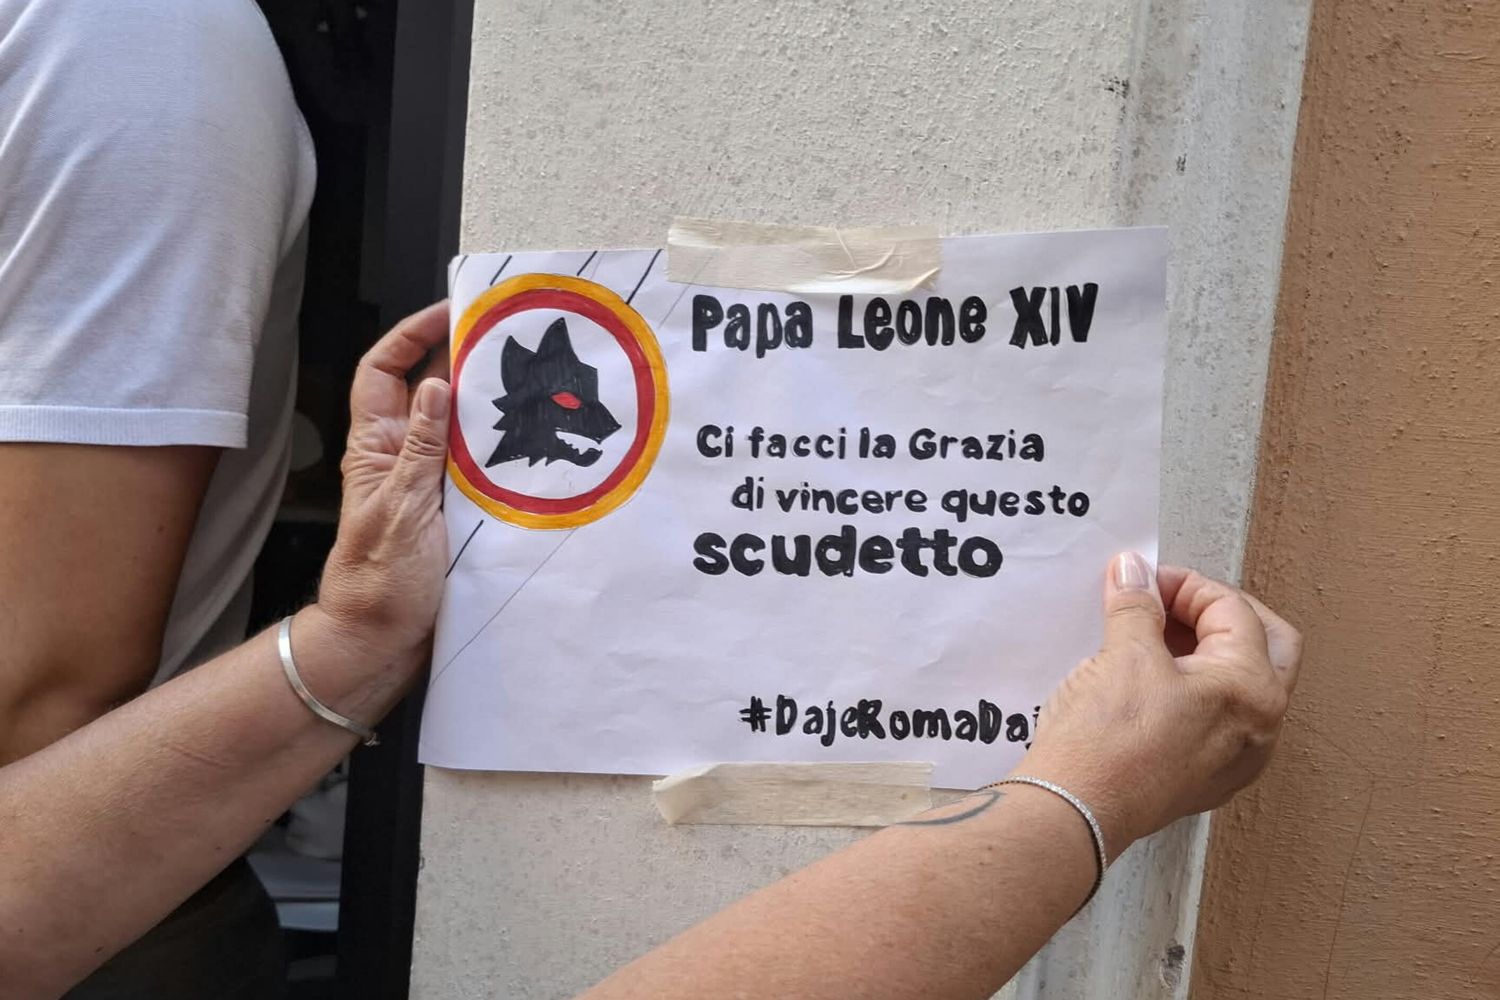 Papa Leone XIV
Ci facci la Grazia
di vincere questo
scudetto
#DajeRomaDaj